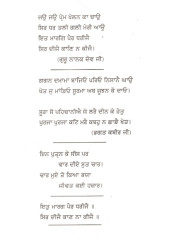 ਜਉ ਤਉ ਪ੍ਰੇਮ ਖੇਲਨ ਕਾ ਚਾਉ
ਸਿਰ ਧਰ ਤਲੀ ਗਲੀ ਮੇਰੀ ਆਉ
ਇਤੁ ਮਾਰਗਿ ਪੈਰ ਧਰੀਜੈ
ਸਿਰ ਦੀਜੈ ਕਾਣਿ ਨ ਕੀਜੈ।
(ਗੁਰੂ ਨਾਨਕ ਦੇਵ ਜੀ)
ਗਗਨ ਦਮਾਮਾ ਬਾਜਿਓ ਪਰਿਓ ਨਿਸਾਨੈ ਘਾਉ
ਖੇਤ ਜੁ ਮਾਂਡਿਓ ਸੂਰਮਾ ਅਬ ਜੂਝਨ ਕੋ ਦਾਉ।
ਸੂਰਾ ਸੋ ਪਹਿਚਾਨੀਐ ਜੋ ਲਰੈ ਦੀਨ ਕੇ ਹੇਤੁ
ਪੁਰਜਾ ਪੁਰਜਾ ਕਟਿ ਮਰੈ ਕਬਹੂ ਨ ਛਾਡੈ ਖੇਤੁ।
(ਭਗਤ ਕਬੀਰ ਜੀ)
ਇਨ ਪੁਤ੍ਰਨ ਕੇ ਸੀਸ ਪਰ
ਵਾਰ ਦੀਏ ਸੁਤ ਚਾਰ।
ਚਾਰ ਮੂਏ ਤੋ ਕਿਆ ਭਯਾ
ਜੀਵਤ ਕਈ ਹਜ਼ਾਰ।
ਇਤੁ ਮਾਰਗ ਪੈਰ ਧਰੀਜੈ ॥
ਸਿਰ ਦੀਜੈ ਬਾਣ ਨਾ ਕੀਜੈ ॥